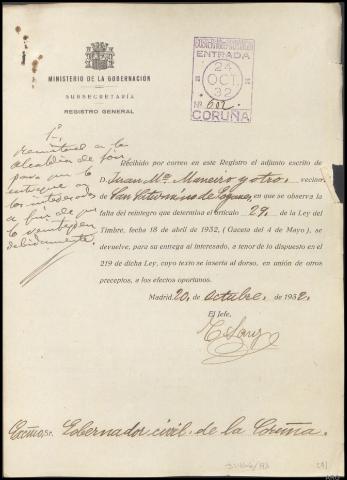 MINISTERIO DE LA GOBERNACIÓN
SUBSECRETARÍA
REGISTRO GENERAL
ENTRADA
24
OCT.
32
Nº
CORUÑA
Remítase a la
alcaldía de
para que lo
entregue a
los interesados
a fin de que
lo reintegren
debidamente.
Recibido por correo en este Registro el adjunto escrito de
D. Juan Mª Maneiro y otro, vecino
de San Saturnino de, en que se observa la
falta del reintegro que determina el artículo 29, de la Ley del
Timbre, fecha 18 de abril de 1932, (Gaceta del 4 de Mayo), se
devuelve, para su entrega al interesado, a tenor de lo dispuesto en el
219 de dicha Ley, cuyo texto se inserta al dorso, en unión de otros
preceptos, a los efectos oportunos.
Madrid, 20, de octubre, de 1932.
El Jefe,
Excmo. Sr. Gobernador civil de la Coruña.